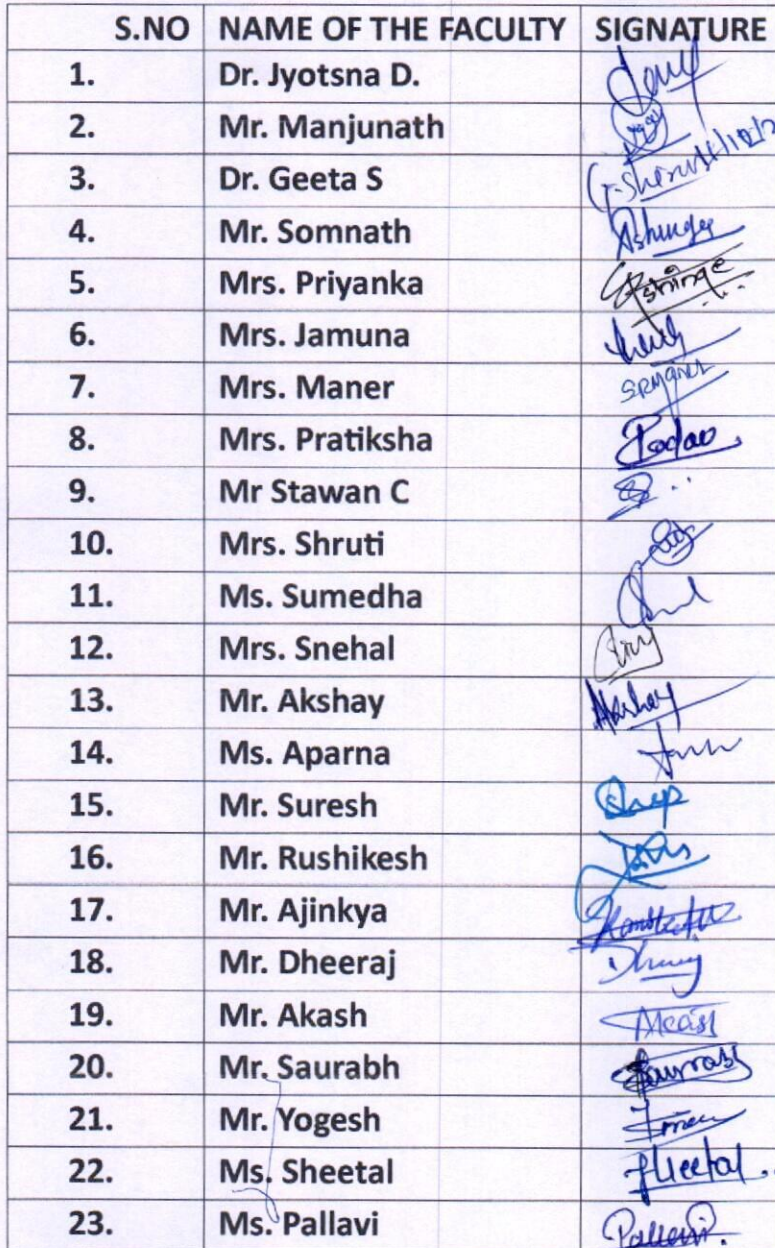 S.NO NAME OF THE FACULTY SIGNATURE
1. Dr. Jyotsna D.
2. Mr. Manjunath
3. Dr. Geeta S
4. Mr. Somnath
5. Mrs. Priyanka
6. Mrs. Jamuna
7. Mrs. Maner
8. Mrs. Pratiksha
9. Mr Stawan C
10. Mrs. Shruti
11. Ms. Sumedha
12. Mrs. Snehal
13. Mr. Akshay Akshay
14. Ms. Aparna
15. Mr. Suresh
16. Mr. Rushikesh
17. Mr. Ajinkya
18. Mr. Dheeraj
19. Mr. Akash
20. Mr. Saurabh
21. Mr. Yogesh
22. Ms. Sheetal Sheetal
23. Ms. Pallavi Pallavi